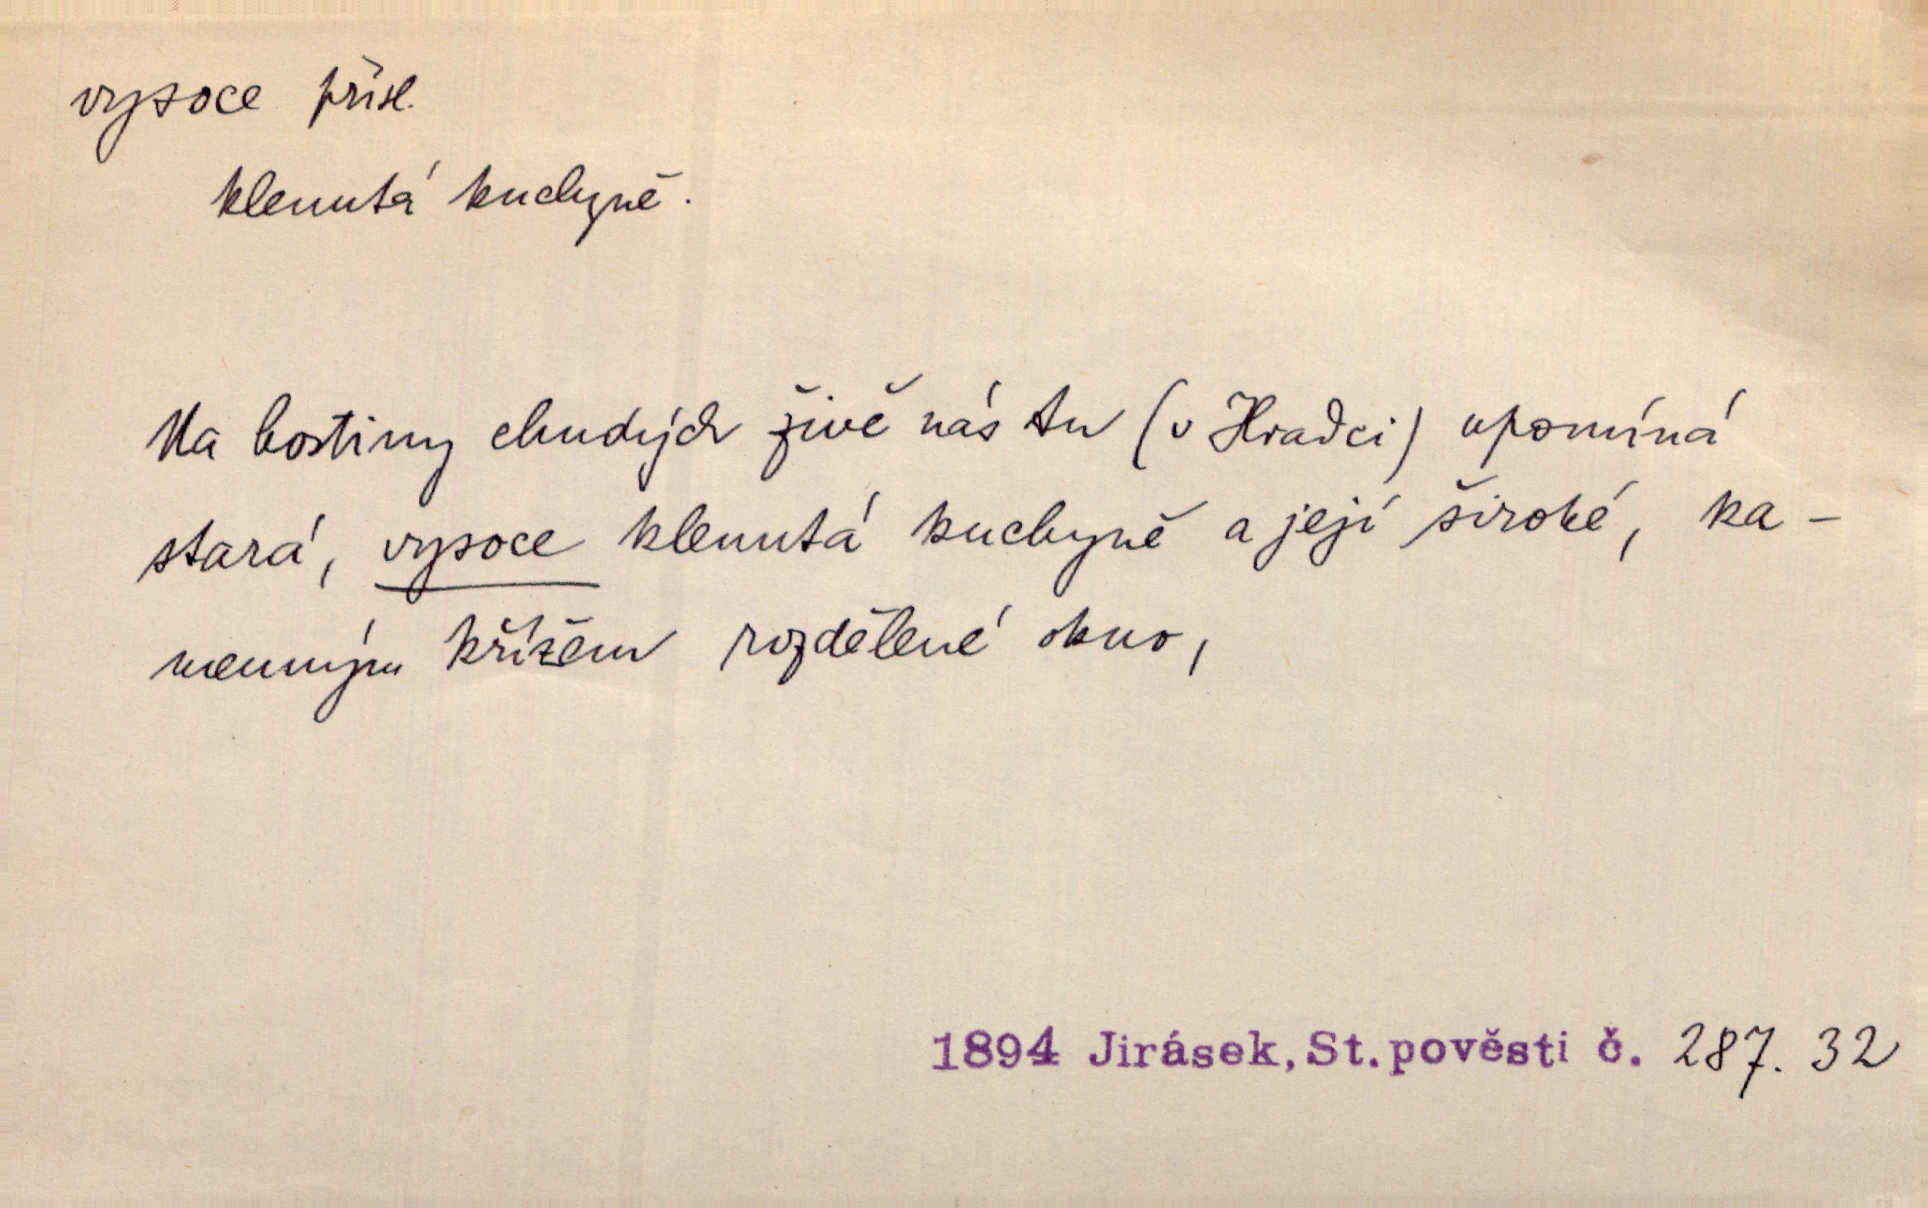 vysoce přísl.
klenutá kuchyně.
Na hostiny chudých živě nás tu (v Hradci) upomíná
stará, vysoce klenutá kuchyně a její široké, ka-
menným křížem rozdělené okno,
1894 Jirásek, St. pověsti č. 287. 32